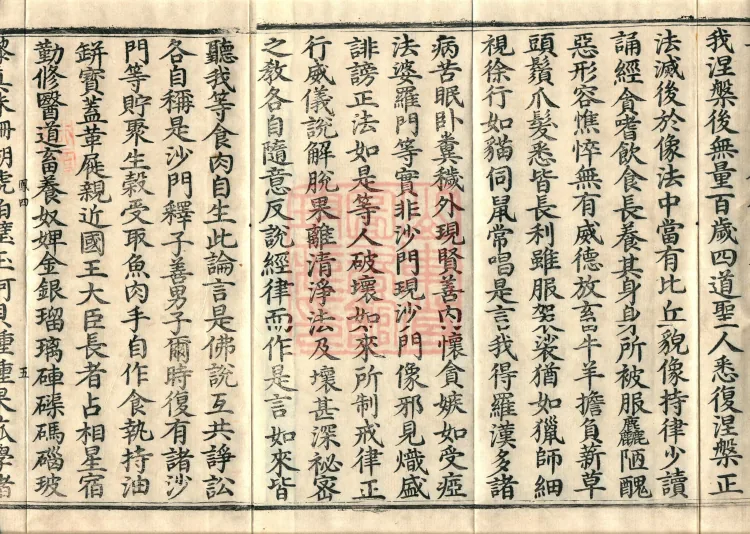 我涅槃後無量百歲四道聖人悉復涅槃正
法滅後於像法中當有比丘貌像持律少讀
誦經貪嗜飲食長養其身身所被服麤陋醜
惡形容憔悴無有威德放畜牛羊擔負薪草
頭鬚爪髮悉皆長利雖服袈裟猶如獵師細
視徐行如貓伺鼠常唱是言我得羅漢多諸
病苦眠卧糞穢外現賢善內懷貪嫉如受瘂
法婆羅門等實非沙門現沙門像邪見熾盛
誹謗正法如是等人破壞如來所制戒律正
行威儀說解脫果離清淨法及壞甚深祕密
之教各自隨意反說經律而作是言如來皆
聽我等食肉自生此論言是佛說互共諍訟
各自稱是沙門釋子善男子爾時復有諸沙
門等貯聚生穀受取魚肉手自作食執持油
缾寶蓋革屣親近國王大臣長者占相星宿
勤修醫道畜養奴婢金銀瑠璃硨磲碼碯玻
鳳四
五